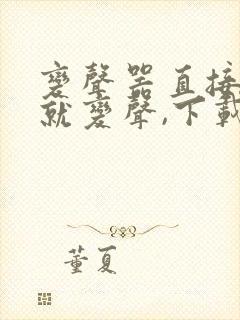 變聲器直接
就變聲,下載
董夏